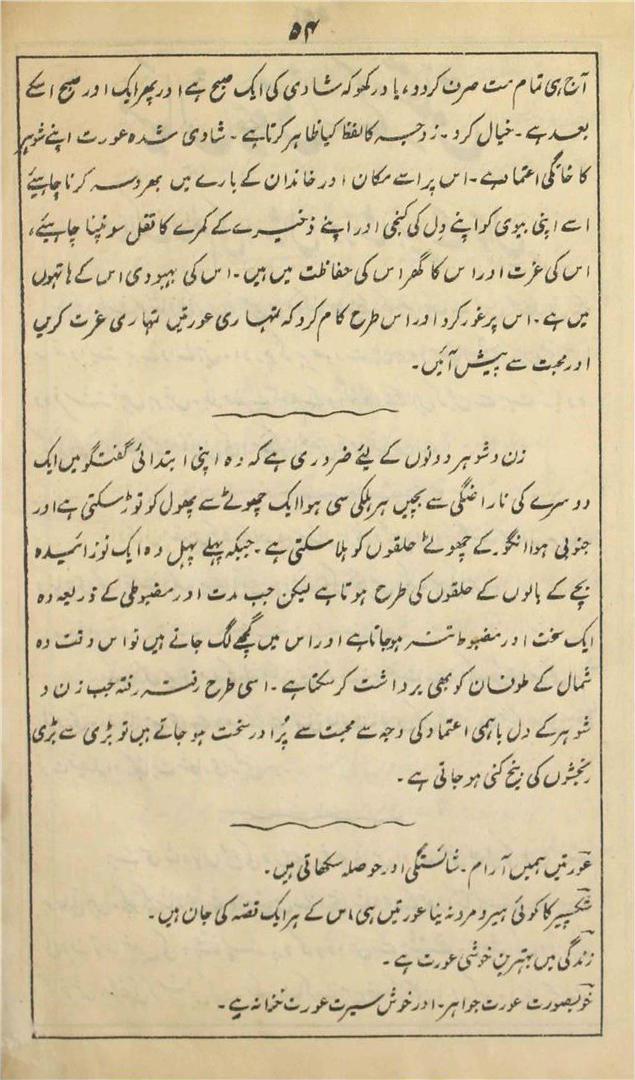 ۵۴
آج ہی تمام مت صرف کردو، یاد رکھو کہ شادی کی ایک صبح ہے اور پھر ایک اور صبح اسکے
بعد ہے۔ خیال کرو۔ زوجہ کا لفظ کیا ظاہر کرتا ہے۔ شادی شدہ عورت اپنے شوہر
کا خانگی اعتماد ہے۔ اس پر اسے مکان اور خاندان کے بارے میں بھروسہ کرنا چاہیئے
اسے اپنی بیوی کو اپنے دل کی کنجی اور اپنے ذخیرے کے کمرے کا قفل سونپنا چاہیئے،
اس کی عزت اور اس کا گھر اس کی حفاظت میں ہیں۔ اس کی بہبودی اس کے ہاتہوں
میں ہے۔ اس پر غور کرو اور اس طرح کام کرو کہ تمہاری عورتیں تمہاری عزت کریں
اور محبت سے پیش آئیں۔
زن و شوہر دونوں کے لیئے ضروری ہے کہ وہ اپنی ابتدائی گفتگو میں ایک
دوسرے کی ناراضگی سے بچیں ہر ہلکی سی ہوا ایک چھوٹے سے پھول کو توڑ سکتی ہے اور
جنوبی ہوا انگور کے چھوٹے حلقوں کو ہلا سکتی ہے۔ جبکہ پہلے پہل وہ ایک نوزائیدہ
بچے کے بالوں کے حلقوں کی طرح ہوتا ہے لیکن جب مدت اور مضبوطی کے ذریعہ وہ
ایک سخت اور مضبوط تنہ ہو جاتا ہے اور اس میں گچھے لگ جاتے ہیں تو اس وقت وہ
شمال کے طوفان کو بھی برداشت کر سکتا ہے۔ اسی طرح رفتہ رفتہ جب زن و
شوہر کے دل باہمی اعتماد کی وجہ سے محبت سے پُر اور سخت ہو جاتے ہیں تو بڑی سے بڑی
رنجشوں کی بیخ کنی ہو جاتی ہے۔
عورتیں ہمیں آرام۔ شائستگی اور حوصلہ سکھاتی ہیں۔
شکسپیر کا کوئی ہیرو مرد نہ بنا عورتیں ہی، اس کے ہر ایک قصّہ کی جان ہیں۔
زندگی میں بہترین خوشی عورت ہے۔
خوبصورت عورت جواہر۔ اور خوش سیرت عورت خزانہ ہے۔